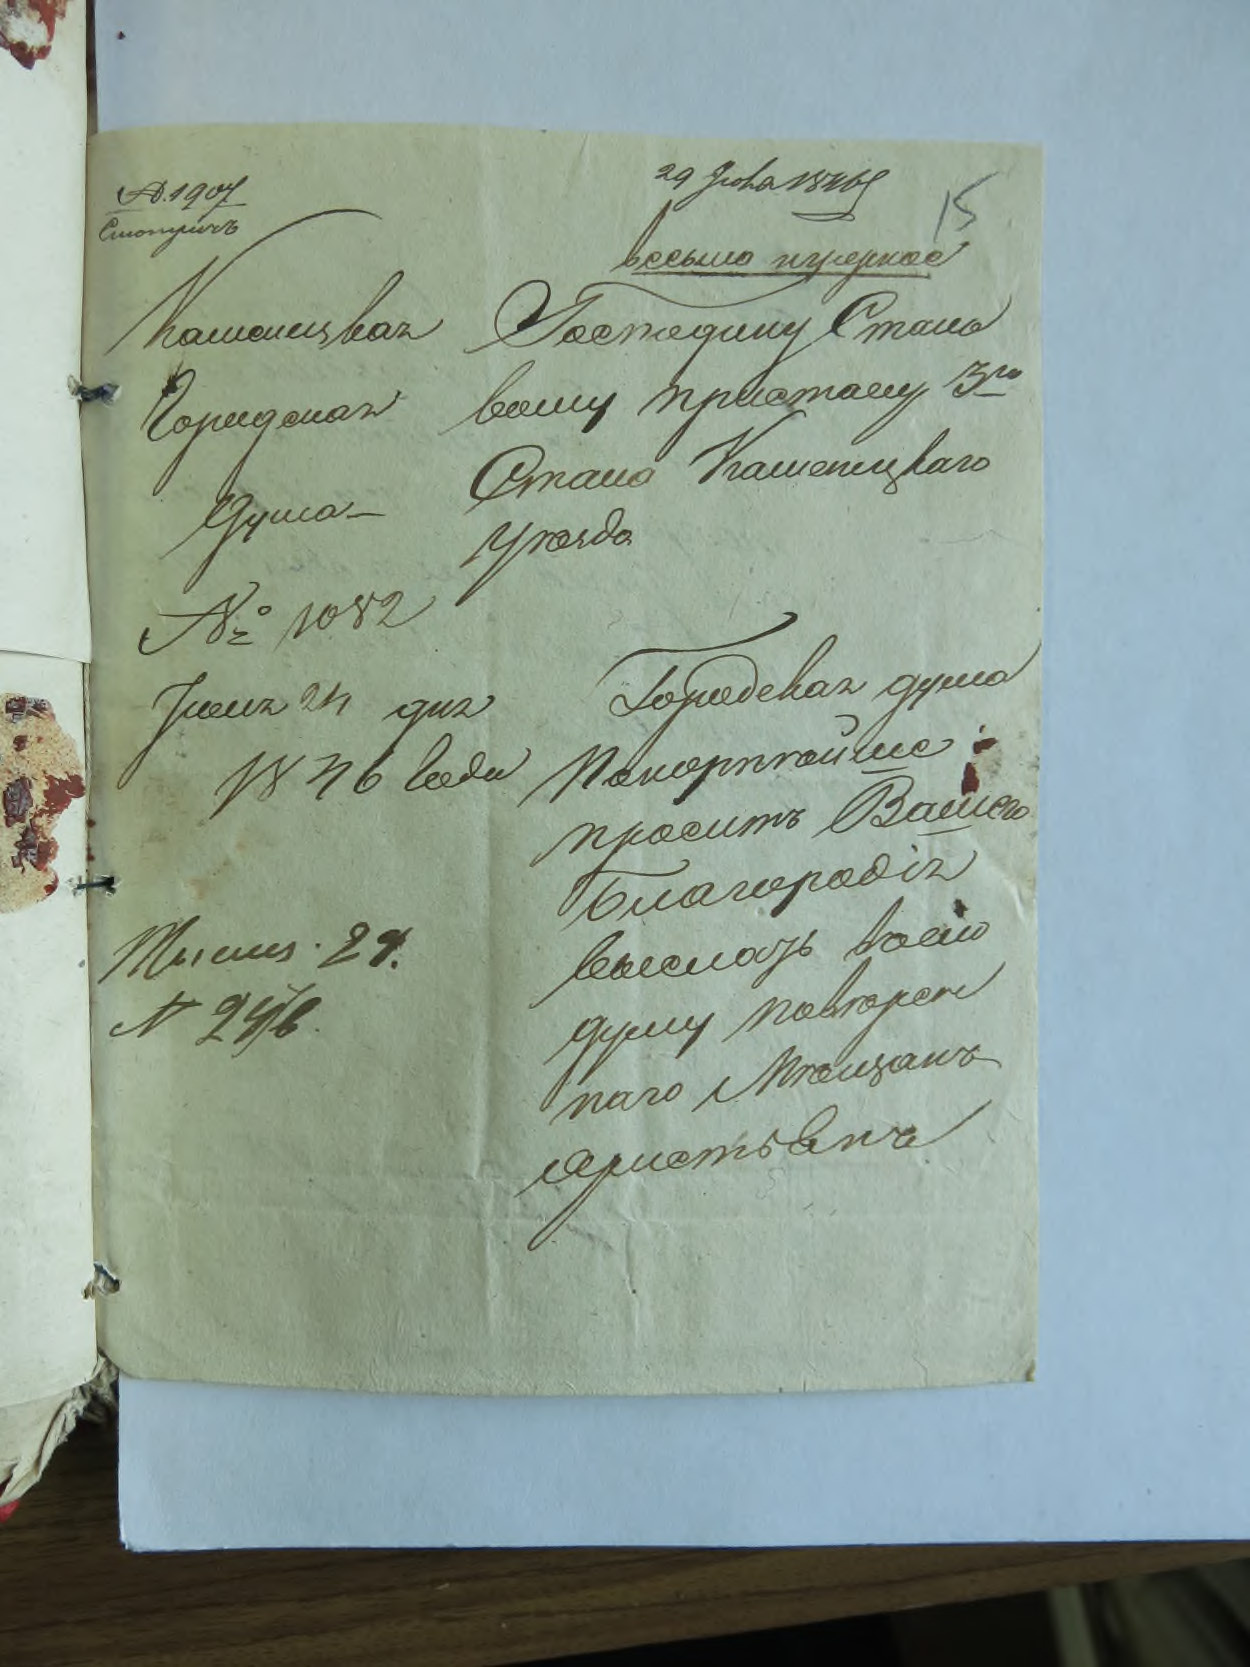 № 1907
Смотричъ
29 Іюня 1846
15
весьма нужное
Каменецкая
Городская
Дума
№ 1082
Іюня 24 дня
1846 Года
Господину Стано
вому приставу 3го
Стана Каменецкаго
Уезда
Городская дума
Покорнейше
проситъ Вашего
Благородія
выслать въ сию
думу
наго Мещанъ
№ 2476